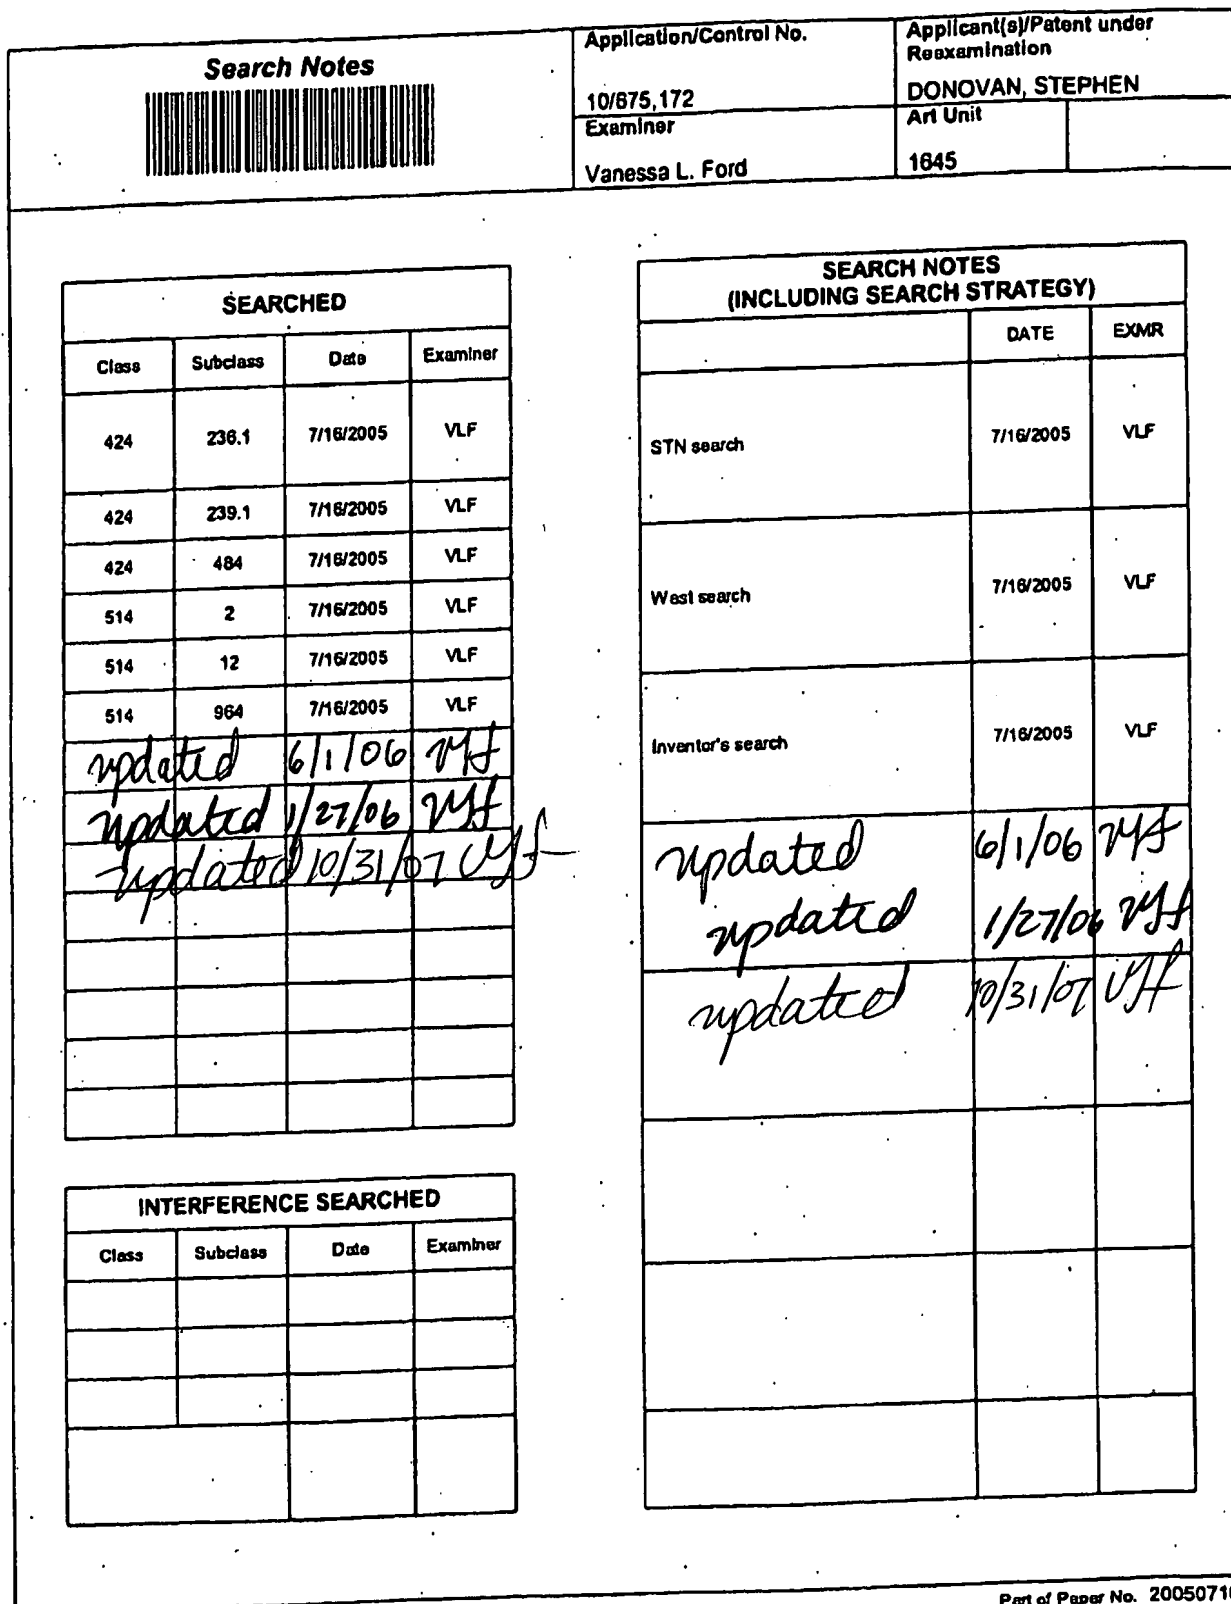 Search Notes
Application/Control No.
10/675,172
Applicant(s)/Patent under
Reexamination
DONOVAN, STEPHEN
Examiner
Vanessa L. Ford
Art Unit
1645
SEARCHED
Class Subclass Date Examiner
424 236.1 7/16/2005 VLF
424 239.1 7/16/2005 VLF
424 484 7/16/2005 VLF
514 2 7/16/2005 VLF
514 12 7/16/2005 VLF
514 964 7/16/2005 VLF
updated 6/1/06 vlf
updated 1/27/06 vlf
updated 10/31/07 vlf
INTERFERENCE SEARCHED
Class Subclass Date Examiner
SEARCH NOTES
(INCLUDING SEARCH STRATEGY)
DATE EXMR
STN search 7/16/2005 VLF
West search 7/16/2005 VLF
Inventor's search 7/16/2005 VLF
updated 6/1/06 vlf
updated 1/27/06 vlf
updated 10/31/07 vlf
Part of Paper No.